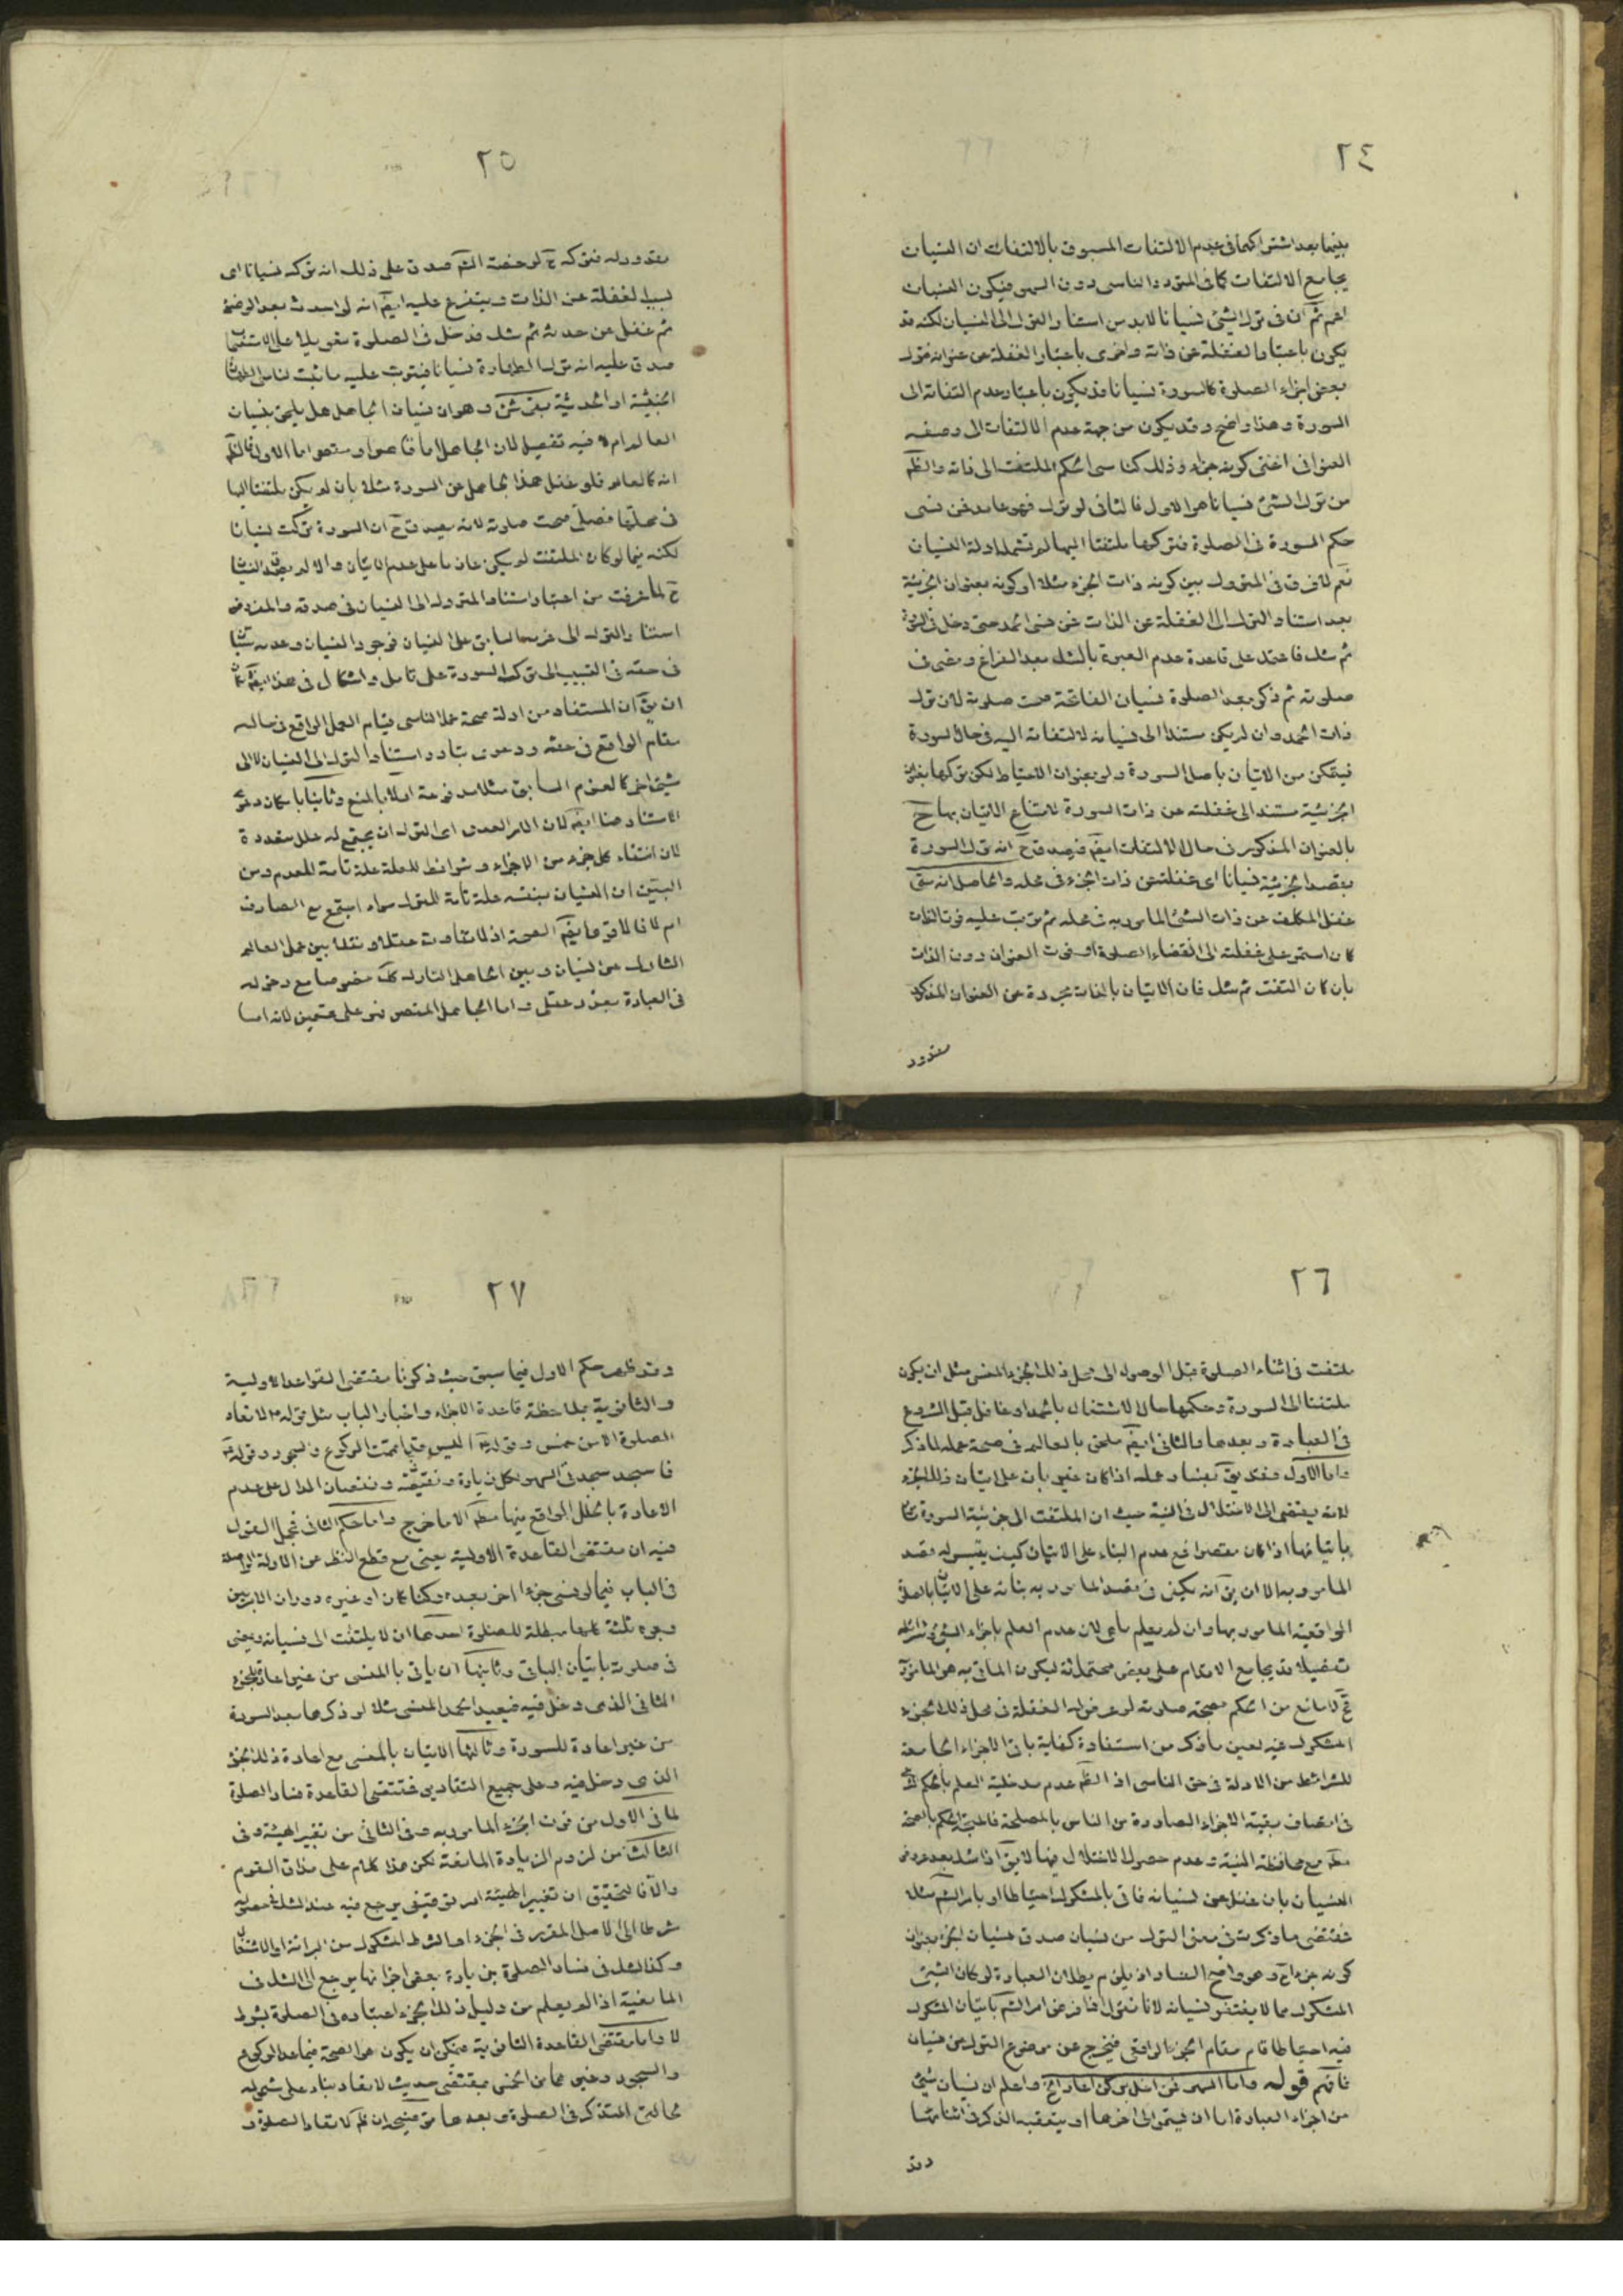 ٢٤
بينهما بعد اشتراكهما في عدم الالتفات المسبوق بالالتفات ان النسيان
يجامع الالتفات كما في المتردد والناسي دون السهو فيكون النسيان
اعم ثم ان في ترك الشئ نسيانا لا بد من استناد الترك الى النسيان لكنه قد
يكون باعتبار الغفلة عن ذاته واخرى باعتبار الغفلة عن عنوانه فترك
بعض اجزاء الصلوة كالسورة نسيانا قد يكون باعتبار عدم التفاته الى
السورة وهذا واضح وقد يكون من جهة عدم الالتفات الى وصفه
العنواني اعني كونه جزء وذلك كناسي الحكم الملتفت الى ذاته والظّم
من ترك الشئ نسيانا هو الاول فالثاني لو ترك فهو عامد فمن نسى
حكم السورة في الصلوة فتركها ملتفتا اليها لم تشمله ادلة النسيان
نعم لا فرق في المتروك بين كونه ذات الجزء مثلا او كونه بعنوان الجزئية
بعد استناد الترك الى الغفلة عن الذات فمن نسى الحمد حتى دخل في السورة
ثم شك فاعتمد على قاعدة عدم العبرة بالشك بعد الفراغ ومضى في
صلوته ثم ذكر بعد الصلوة نسيان الفاتحة صحت صلوته لان ترك
ذات الحمد وان لم يكن مستندا الى نسيانه لالتفاته اليه في حال السورة
فيتمكن من الاتيان باصل السورة ولو بعنوان الاحتياط لكن تركها بعنوان
الجزئية مستند الى غفلته عن ذات السورة لامتناع الاتيان بها ح
بالعنوان المذكور في حال الالتفات ايضّم فيصدق ح انه ترك السورة
بقصد الجزئية نسيانا اى غفلته عن ذات الجزء في محله والحاصل انه متى
غفل المكلف عن ذات الشئ المامور به في محله ثم ترتب عليه فوت الذات
كان استمر على غفلته الى انقضاء الصلوة او فوت العنوان دون الذات
بان كان التفت ثم شك فان الاتيان بالذات مجردة عن العنوان المذكور
مقدور
٢٥
مقدور له فتركه ح
صدق على ذلك انه تركه نسيانا اى
لسبب الغفلة عن الذات ويتفرع عليه ايضّم انه لو احدث بعد الوضوء
ثم غفل عن حدثه ثم شك فدخل في الصلوة تعويلا على الاستصحاب
صدق عليه انه ترك الطهارة نسيانا فيترتب عليه ما ثبت لناسي الطهارة
الخبثية او الحدثية بقى شئ وهو ان نسيان الجاهل هل يلحق بنسيان
العالم ام لا فيه تفصيل لان الجاهل اما قاصر او مقصر اما الاول فالظّم
انه كالعالم فلو غفل هذا الجاهل عن السورة مثلا بان لم يكن ملتفتا اليها
في محلها فصلى صحت صلوته لانه يصدق ح ان السورة تركت نسيانا
لكنه فيما لو كان الملتفت لم يكن عازما على عدم الاتيان والا لم يصدق النسيان
ح لما عرفت من اعتبار استناد المتروك الى النسيان في صدقه والمفروض
استناد الترك الى عزمه السابق على النسيان فوجود النسيان وعدمه سيان
في حقه في التسبيب الى ترك السورة على تامل واشكال في هذا
ان يقّ ان المستفاد من ادلة صحة عمل الناسي قيام العمل الواقع في حاله
مقام الواقع في حقه ودعوى تبادر استناد الترك الى النسيان لا الى
شئ اخر كالعزم السابق مثلا مدفوعة اولا بالمنع وثانيا بامكان دعوى
الاستناد هنا ايضّم لان الامر العدمي اى الترك ان يجتمع له علل متعددة
لان انتفاء كل جزء من الاجزاء وشرائط للعلة علة تامة للعدم ومن
البيّن ان النسيان بنفسه علة تامة للترك سواء اجتمع مع الصارف
ام لا
الصحة اذ لا تفاوت عقلا ونقلا بين عمل العالم
التارك عن نسيان وبين الجاهل التارك كك خصوصا مع دخوله
في العبادة بعذر عقلي واما الجاهل المقصر فهو على قسمين لانه اما
٢٦
ملتفت في اثناء الصلوة قبل الوصول الى محل ذلك الجزء المنسى مثل ان يكون
ملتفتا الى السورة وحكمها حال الاشتغال بالحمد او غافل قبل الشروع
في العبادة وبعدها والثاني ايضّم ملحق بالعالم في صحة عمله لما ذكر
واما الاول فقد يقّ بفساد عمله اذا كان غير بان على اتيان ذلك الجزء
لانه يفتضي الى الاختلال في النية حيث ان الملتفت الى جزئية السورة
باتيانها اذا كان مقصرا مع عدم البناء على الاتيان كيف يتيسر له قصد
المامور به الا ان يقّ انه يكفي في قصد المامور به بنائه على الاتيان بالصلوة
الواقعية المامور بها وان لم يعلم باى لان عدم العلم باجزاء الشئ وشرائطه
تفصيلا قد يجامع الاقدام على بعض محتملاته ليكون الماتي به هو المامور به
فح لا مانع من الحكم بصحة صلوته لو عرض له الغفلة في محل ذلك الجزء
المشكوك فيه لعين ما ذكر من استفادة كفاية باقي الاجزاء الجامعة
للشرائط من الادلة في حق الناسي اذ الظّم عدم مدخلية العلم بالحكم
في اتصاف بقية الاجزاء الصادرة من الناس بالمصلحة
الحكم بالصحة
مع محافظة النية وعدم حصول الاختلال فيها لا يقّ اذا شك بعد عروض
النسيان بان غفل عن نسيانه فاتى بالمشكوك احتياطا او بامر الشم مثلا
فمقتضى ما ذكرت في معنى الترك من نسيان صدق نسيان الجزء بعنوان
كونه جزء ح وهو واضح الفساد اذ يلزم بطلان العبادة لو كان الشئ
المشكوك مما لا يغتفر نسيانه لانا نقول اذا فرض امر الشم باتيان المشكوك
فيه احتياطا قام مقام الجزء الواقعي فيخرج عن موضوع الترك عن نسيان
فافهم قوله واما السهو فمن اخل بركن اعاد الخ واعلم ان نسيان شئ
من اجزاء العبادة اما ان يستمر الى اخرها او يتعقبه الذكر في اثنائها
وقد
٢٧
وقد ظهر حكم الاول فيما سبق حيث ذكرنا مقتضى القواعد الاولية
والثانوية بملاحظة قاعدة الاجزاء واخبار الباب مثل قوله لا تعاد
الصلوة الا من خمس وقوله اليس قد اتممت الركوع والسجود وقوله
فاسجد سجدتي السهو لكل زيادة ونقيصة ونقصان الدال على عدم
الاعادة بالخلل الواقع فيها
الا ما خرج واما حكم الثاني فمجمل القول
فيه ان مقتضى القاعدة الاولية يعني مع قطع النظر عن الادلة الواصلة
في الباب فيما لو نسى جزءا اخر بعده ركنا كان او غيره دوران الامر بين
وجوه ثلثة كلها مبطلة للصلوة احدها ان لا يلتفت الى نسيانه ويمضى
في صلوته باتيان الباقي وثانيها ان ياتي بالمنسى من غير اعادة الجزء
الثاني الذي دخل فيه فيعيد الحمد المنسى مثلا لو ذكرها بعد السورة
من غير اعادة للسورة وثالثها الاتيان بالمنسى مع اعادة ذلك الجزء
الذي دخل فيه وعلى جميع التقادير فمقتضى القاعدة فساد الصلوة
لما في الاول من فوت الجزء المامور به وفي الثاني من تغيير الهيئة وفي
الثالث من لزوم الزيادة المانعة لكن هذا كلام على مذاق القوم
والا فالتحقيق ان تغيير الهيئة امر توقيفي يرجع فيه عند الشك في
شرطا الى الاصل المقرر في الجزء او الشرط المشكوك من البرائة او الاشتغال
وكذا الشك في فساد الصلوة بزيادة بعض اجزائها يرجع الى الشك في
المانعية اذا لم يعلم من دليل ذلك الجزء اعتباره في الصلوة بشرط
لا واما مقتضى القاعدة الثانوية فيمكن ان يكون هو الصحة فيما عدا الركوع
والسجود وغيرهما من الخمس بمقتضى حديث لا تعاد بناء على شموله
لحالتي التذكر في الصلوة وبعدها
لا تعاد الصلوة و